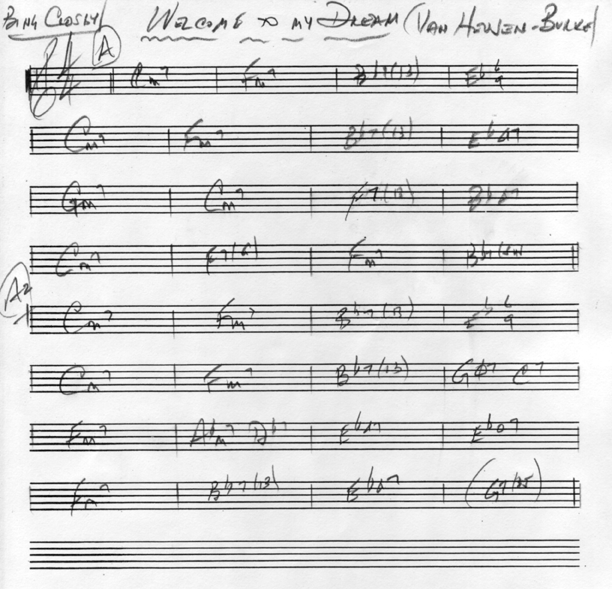 BING CROSBY WELCOME TO MY DREAM (VAN HEUSEN-BURKE)
A
4 4 Cm7 Fm7 Bb7(13) Eb6 9
Cm7 Fm7 Bb7(13) EbΔ7
Gm7 Cm7 F7(13) BbΔ7
Cm7 F7 Fm7 Bb7
A2
Cm7 Fm7 Bb7(13) Eb6 9
Cm7 Fm7 Bb7(13) Gø7 C7
Fm7 Abm7 Db7 EbΔ7 Ebo7
Fm7 Bb7(13) EbΔ7 (G7)